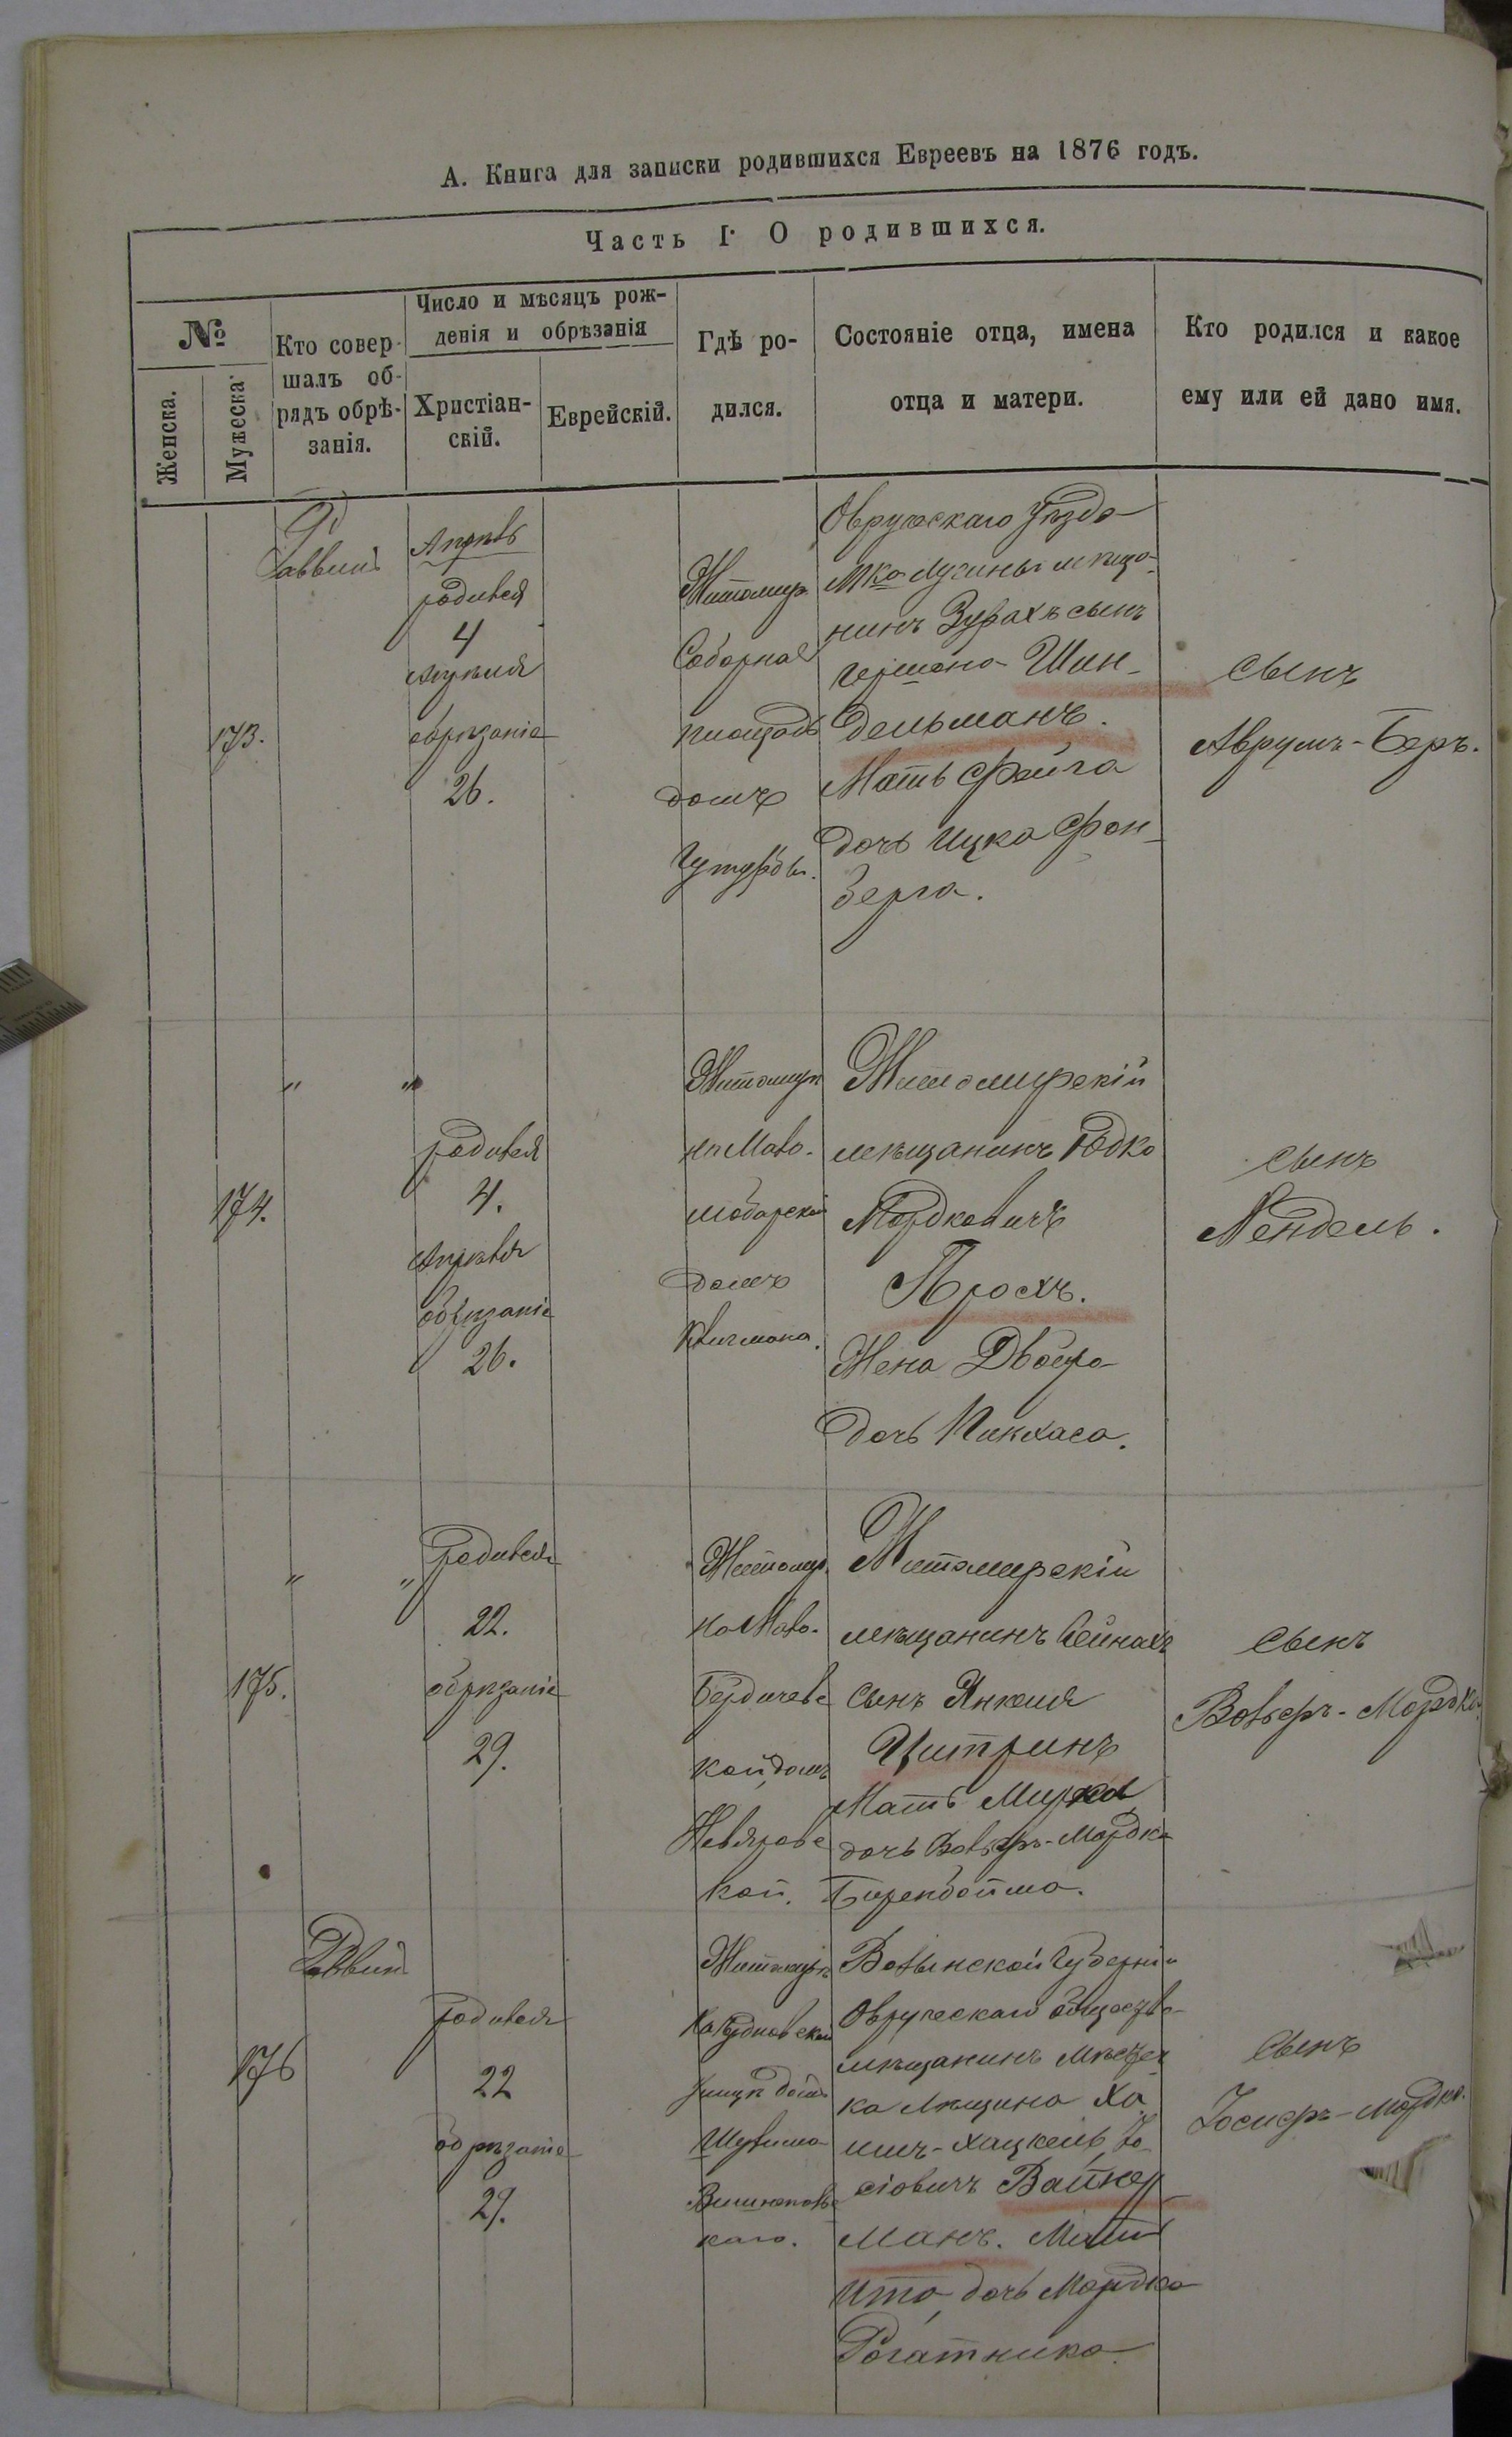 А. Книга для записки родившихся Евреевъ на 1876 годъ.
Часть I. О родившихся.
№
Женска.
Мужеска.
Кто совер-
шалъ об-
рядъ обрѣ-
занія.
Число и мѣсяцъ рож-
денія и обрѣзанія
Христіан-
скій.
Еврейскій.
Гдѣ ро-
дился.
Состояніе отца, имена
отца и матери.
Кто родился и какое
ему или ей дано имя.
173.
Раввинъ
Апрѣль
родился
4
апрѣля
обрѣзаніе
26.
Житомир.
Соборная
площадь
домъ
Овручскаго уѣзда
М-ка Лугины мѣща-
нинъ Зурахъ сынъ
Гершона Шин-
дельманъ.
Мать Фейга
дочь Ицка Фон-
берга.
сынъ
Аврумъ-Беръ.
174.
" "
родился
4.
Апрѣля
обрѣзаніе
26.
Житомир
на Мало-
домъ
Житомирскій
мѣщанинъ Юдко
Мордковичъ
Прохъ.
Жена Двойра
дочь Пинхаса.
сынъ
Мендель.
175.
" "
родился
22.
обрѣзаніе
29.
Житомир.
на Мало-
Бердичевс
кой, домъ
кой.
Житомирскій
мѣщанинъ Сейнахъ
сынъ Янкеля
Цитринъ
Мать Мирка
дочь Вольфъ-Мордка
Биренбойма.
сынъ
Вольфъ-Мордко
176
Раввин
родился
22
обрѣзаніе
29.
Житомирѣ
на Чудновской
улицѣ домъ
каго.
Волынской Губерніи
Овручскаго общества
мѣщанинъ мѣстеч
ка Ха
имъ-Хацкель Іо-
сіовичъ Вайнер
манъ. Мать
Ита дочь Мордка
Рогатника.
сынъ
Іосифъ-Мордко.